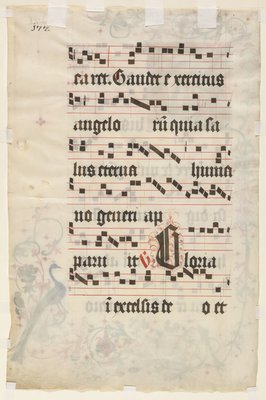 377.
ca ret. Gaudet exercitus
angelo rū quia sa
lus eterna huma
no generi ap
paru it ℣ Gloria
ī excelsis de o et